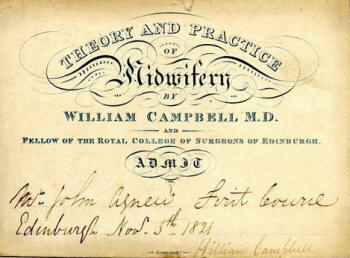 THEORY AND PRACTICE
OF
Midwifery
BY
WILLIAM CAMPBELL M.D.
AND
FELLOW OF THE ROYAL COLLEGE OF SURGEONS OF EDINBURGH.
ADMIT
Mr. John Agnew First Course
Edinburgh Nov. 5th 1821
William Campbell